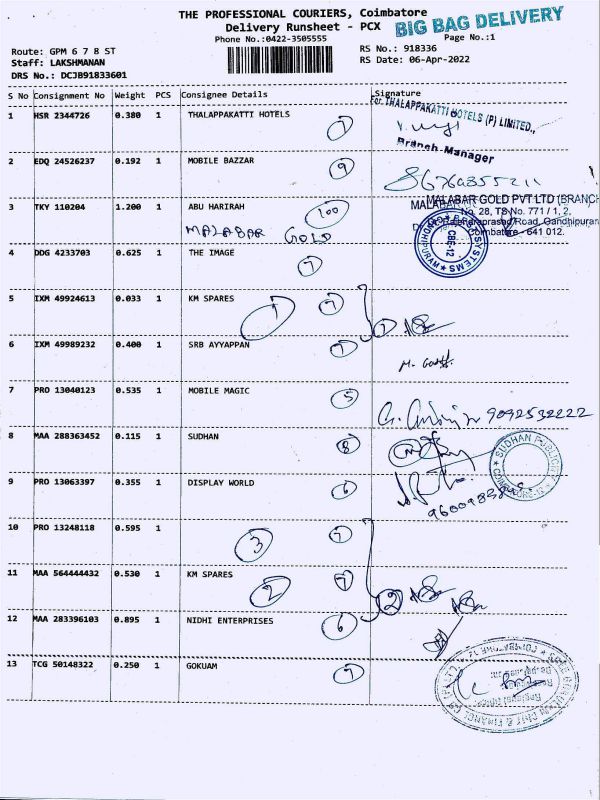 THE PROFESSIONAL COURIERS, Coimbatore
BIG BAG DELIVERY
Delivery Runsheet - PCX
Phone No.:0422-3505555
Page No.:1
Route: GPM 6 7 8 ST
RS No.: 918336
Staff: LAKSHMANAN
RS Date: 06-Apr-2022
DRS No.: DCJB91833601
S No Consignment No Weight PCS Consignee Details Signature
1 HSR 2344726 0.380 1 THALAPPAKATTI HOTELS
For THALAPPAKATTI HOTELS (P) LIMITED.,
7
Branch Manager
2 EDQ 24526237 0.192 1 MOBILE BAZZAR
9
3 TKY 110204 1.200 1 ABU HARIRAH 100
MALABAR GOLD PVT LTD (BRANCH
No. 28, TS No. 771 / 1, 2,
Road, Gandhipuram
Coimbatore - 641 012.
MALABAR GOLD
CBE-12
SYSTEMS
4 DDG 4233703 0.625 1 THE IMAGE
7
5 IXM 49924613 0.033 1 KM SPARES 7
1
6 IXM 49989232 0.400 1 SRB AYYAPPAN 7
7 PRO 13040123 0.535 1 MOBILE MAGIC 5
9092532222
8 MAA 288363452 0.115 1 SUDHAN 8
SUDHAN PUBLICITY
9 PRO 13063397 0.355 1 DISPLAY WORLD 6
10 PRO 13248118 0.595 1 7
3
11 MAA 564444432 0.530 1 KM SPARES 7
2 2
12 MAA 283396103 0.895 1 NIDHI ENTERPRISES 6
13 TCG 50148322 0.250 1 GOKUAM 7